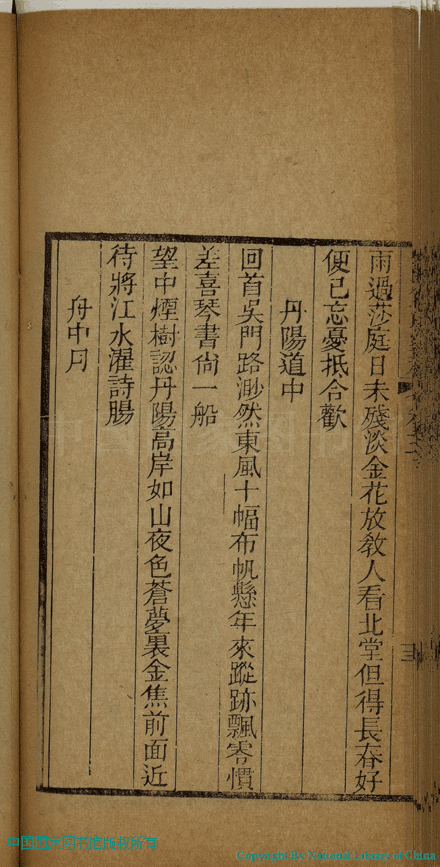 雨過莎庭日未殘淡金花放敎人看北堂但得長春好
便已忘憂抵合歡
丹陽道中
回首吳門路渺然東風十幅布帆懸年來蹤跡飄零慣
差喜琴書尙一船
望中煙樹認丹陽高岸如山夜色蒼夢裏金焦前面近
待將江水濯詩腸
舟中月
三
中国国家图书馆版权所有
Copyright By National Library of China